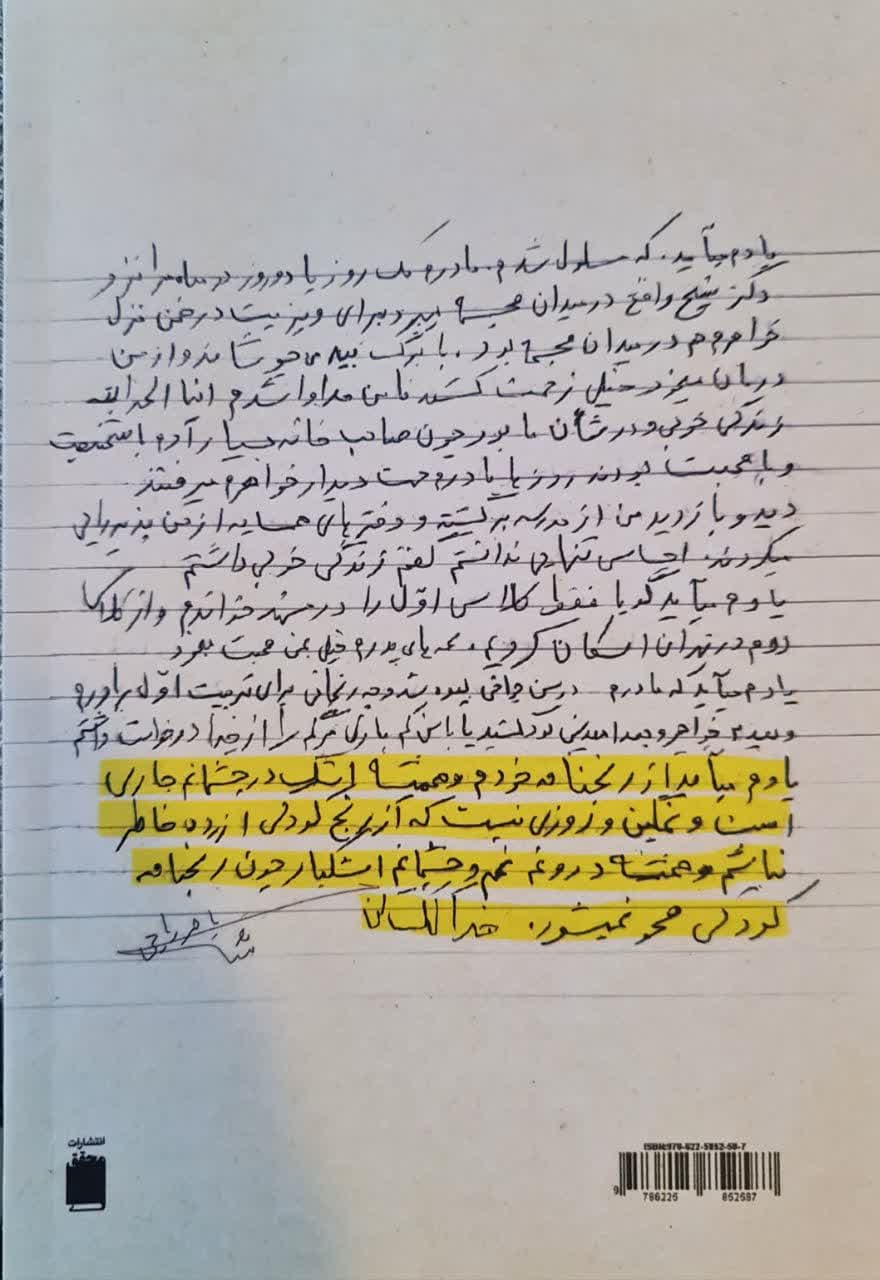 یادم میآید. که مسلول شدم. مادرم یک روز یا دو روز در ماه مرا نزد
دکتر شیخ واقع در میدان مجسمه میبرد برای ویزیت در ضمن منزل
خواهرم هم در میدان مجسمه بود. با برگ بید می جوشاندند و از من
درمان میکرد خیلی زحمت کشید تا من مداوا شدم الحمدالله
زندگی خوبی و در شأن ما بود چون صاحب خانه بسیار آدم باشخصیت
و با محبت بودند روز با مادرم جهت دیدار خواهرم میرفتند
دید و بازدید من از مدرسه برگشته و دخترهای همسایه از من پذیرایی
میکردند. احساس تنهایی نداشتم گفتم زندگی خوبی داشتم
یادم میآید گویا فقط کلاس اول را در مشهد خواندم و از کلاس
دوم در تهران اسکان کردیم. عمه های پدرم خیلی بمن محبت بود
یادم میآید که مادرم درس چاقی بوده شد و چه زحماتی برای تربیت اول برادرم
و سپس خواهرم و بعدا من کشید یا با سن کم بارها مرگم را از خدا درخواست داشتم
یادم میآید از رنجنامه خودم و همیشه اشک در چشمانم جاری
است و غمگین و روزی نیست که از رنج کودکی ازرده خاطر
نباشم و همیشه درونم غم و چشمانم اشکبار چون رنجنامه
کودکی محو نمیشود. خدا
انتشارات
محقق
ISBN:978-622-5852-58-7
9 786225 852587